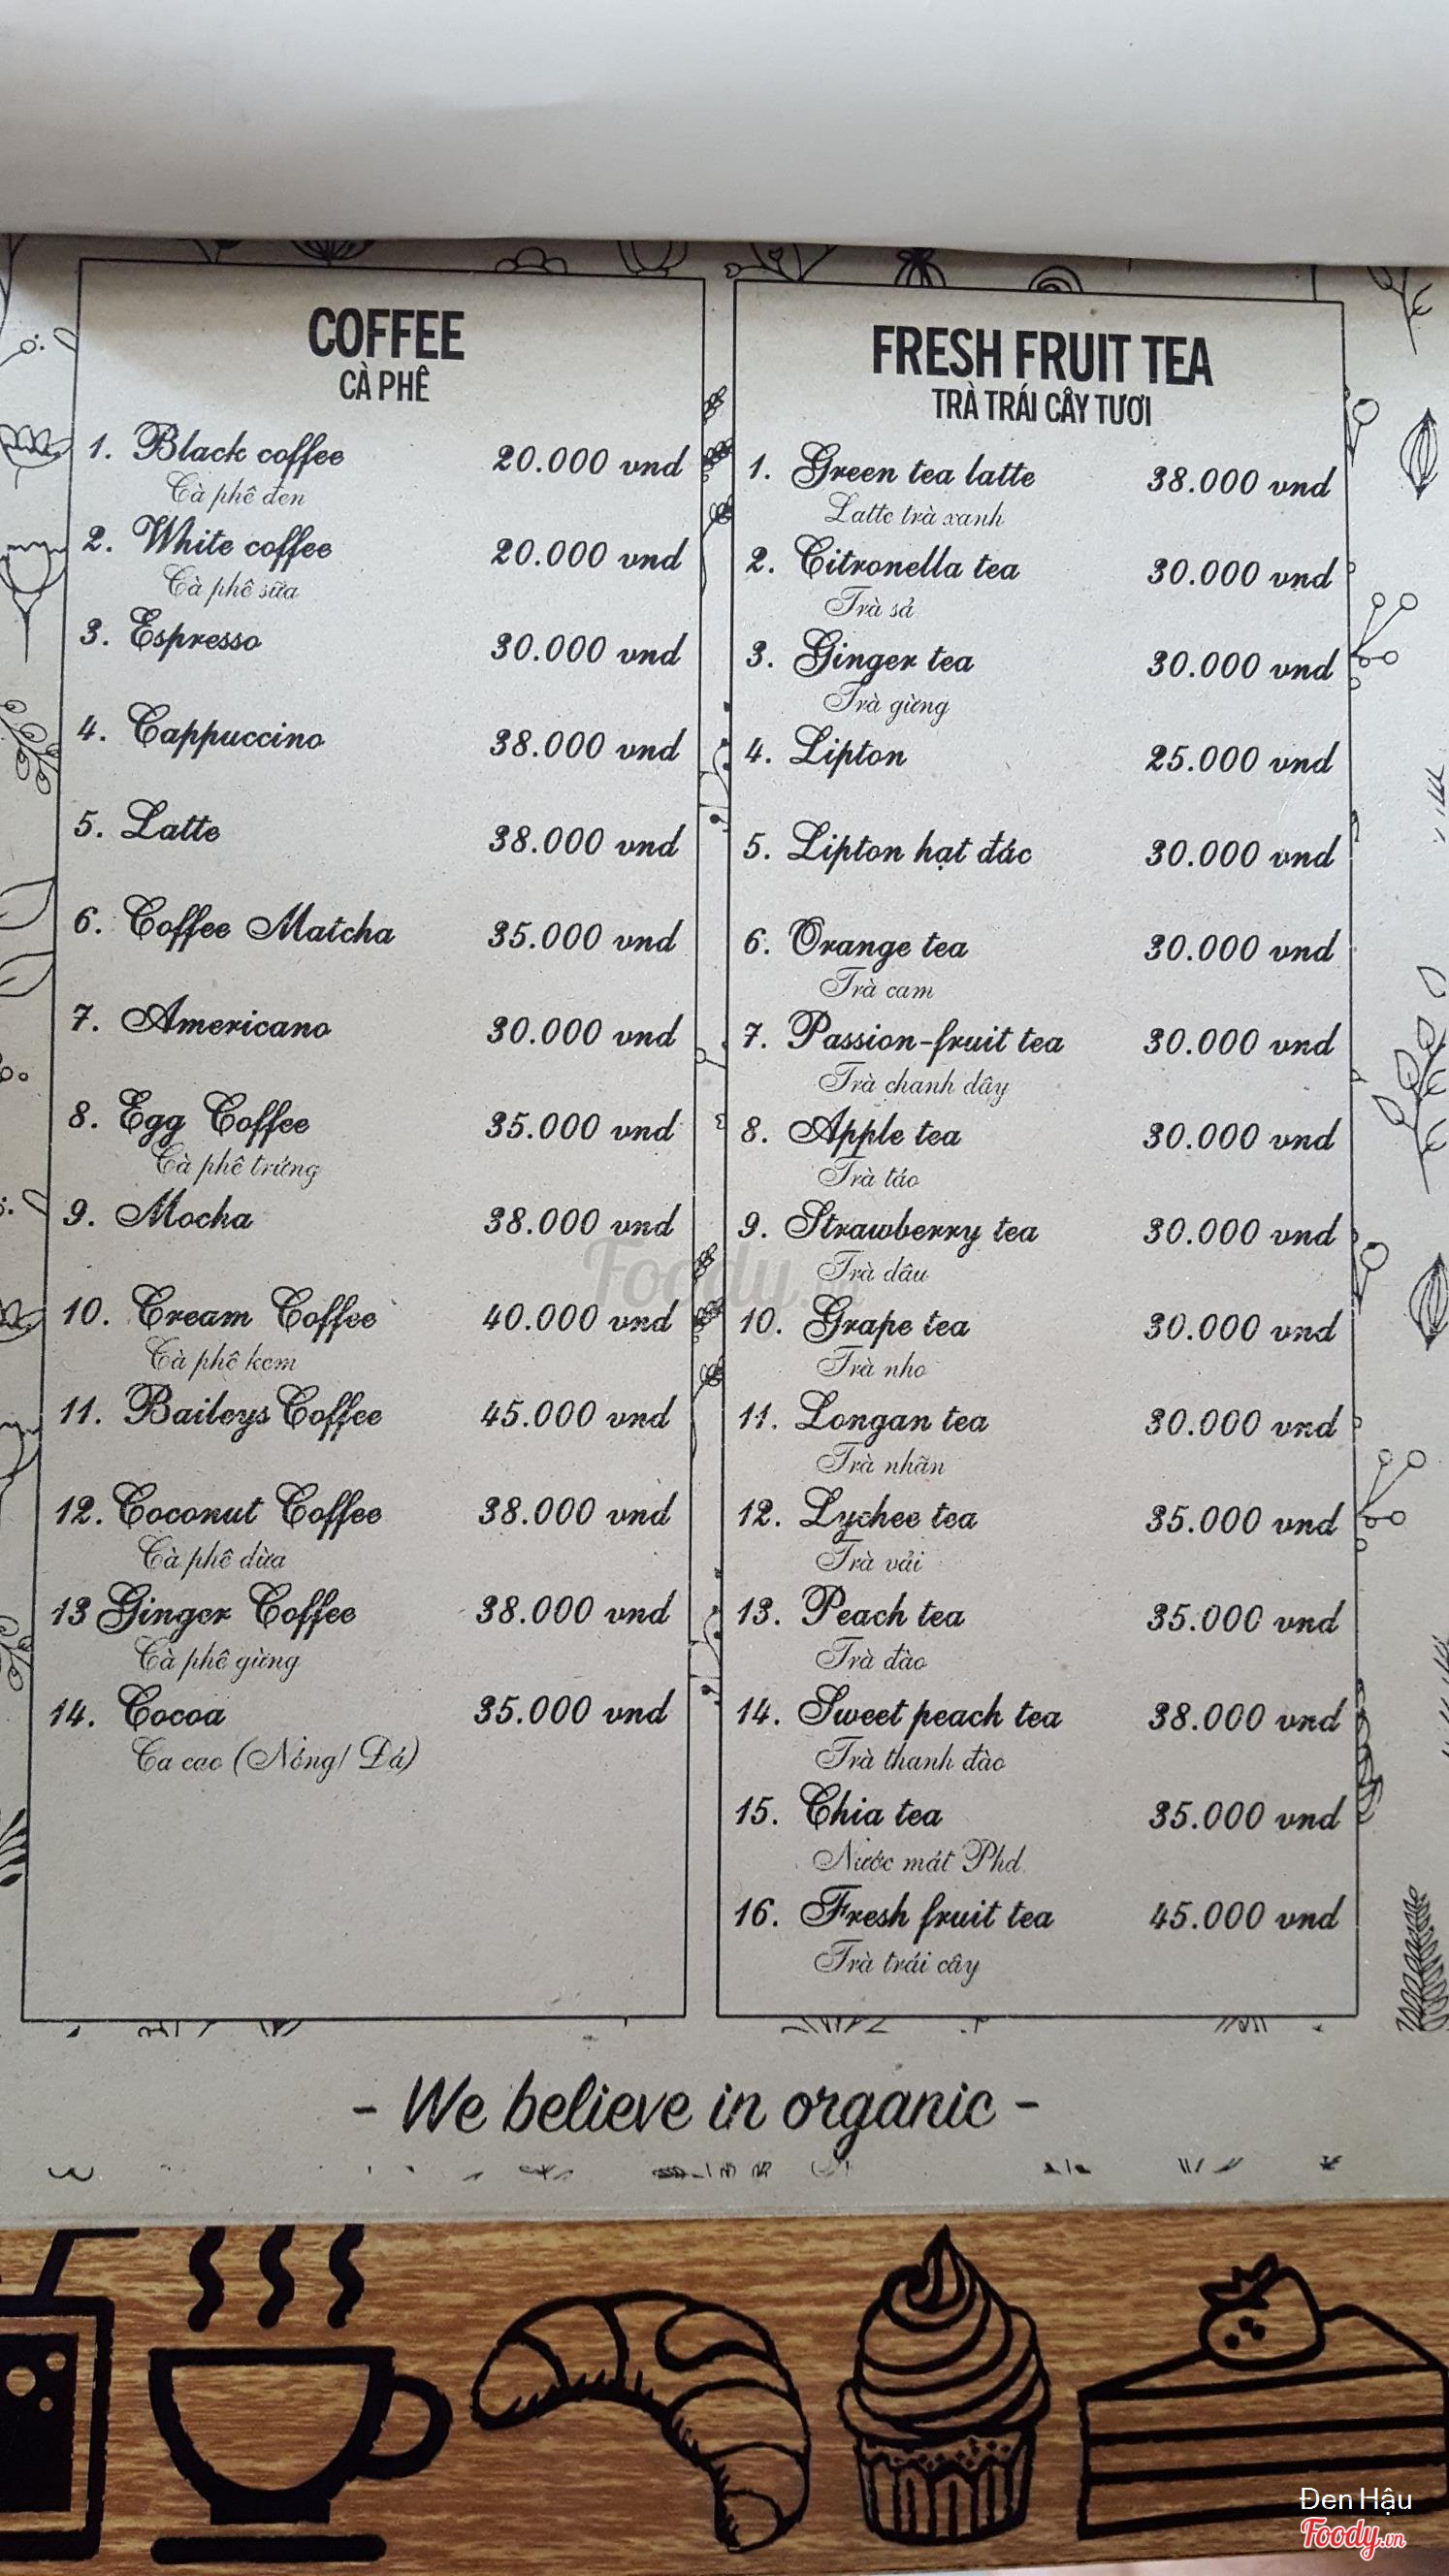 COFFEE
CÀ PHÊ
1. Black coffee 20.000 vnd
Cà phê đen
2. White coffee 20.000 vnd
Cà phê sữa
3. Espresso 30.000 vnd
4. Cappuccino 38.000 vnd
5. Latte 38.000 vnd
6. Coffee Matcha 35.000 vnd
7. Americano 30.000 vnd
8. Egg Coffee 35.000 vnd
Cà phê trứng
9. Mocha 38.000 vnd
10. Cream Coffee 40.000 vnd
Cà phê kem
11. Baileys Coffee 45.000 vnd
12. Coconut Coffee 38.000 vnd
Cà phê dừa
13 Ginger Coffee 38.000 vnd
Cà phê gừng
14. Cocoa 35.000 vnd
Ca cao (Nóng/ Đá)
FRESH FRUIT TEA
TRÀ TRÁI CÂY TƯƠI
1. Green tea latte 38.000 vnd
Latte trà xanh
2. Citronella tea 30.000 vnd
Trà sả
3. Ginger tea 30.000 vnd
Trà gừng
4. Lipton 25.000 vnd
5. Lipton hạt đác 30.000 vnd
6. Orange tea 30.000 vnd
Trà cam
7. Passion-fruit tea 30.000 vnd
Trà chanh dây
8. Apple tea 30.000 vnd
Trà táo
9. Strawberry tea 30.000 vnd
Trà dâu
10. Grape tea 30.000 vnd
Trà nho
11. Longan tea 30.000 vnd
Trà nhãn
12. Lychee tea 35.000 vnd
Trà vải
13. Peach tea 35.000 vnd
Trà đào
14. Sweet peach tea 38.000 vnd
Trà thanh đào
15. Chia tea 35.000 vnd
Nước mát Phd
16. Fresh fruit tea 45.000 vnd
Trà trái cây
Foody.vn
- We believe in organic -
Đen Hậu
Foody.vn